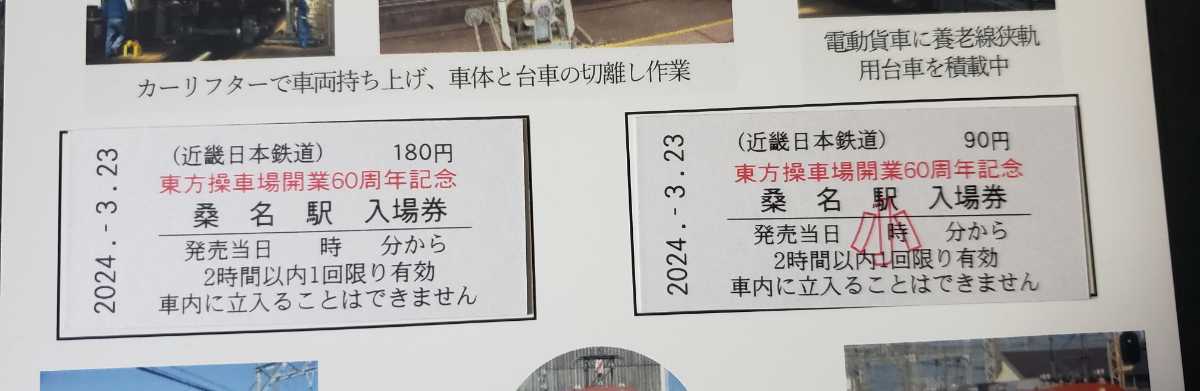 カーリフターで車両持ち上げ、車体と台車の切離し作業
電動貨車に養老線狭軌
用台車を積載中
2024.-3.23
(近畿日本鉄道) 180円
東方操車場開業60周年記念
桑名駅 入場券
発売当日 時 分から
2時間以内1回限り有効
車内に立入ることはできません
2024.-3.23
(近畿日本鉄道) 90円
東方操車場開業60周年記念
桑名駅 入場券
小
発売当日 時 分から
2時間以内1回限り有効
車内に立入ることはできません